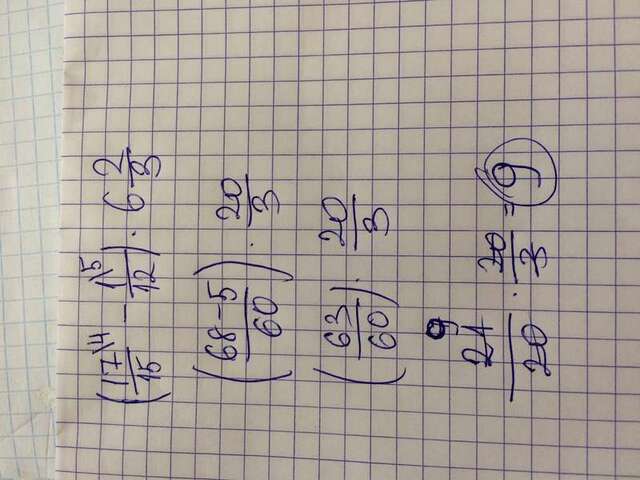 (17\4/15 − 1\5/12) · 6 2/3
(68−5/60) · 20/3
(63/60) · 20/3
9
21/20 · 20/3 = 9